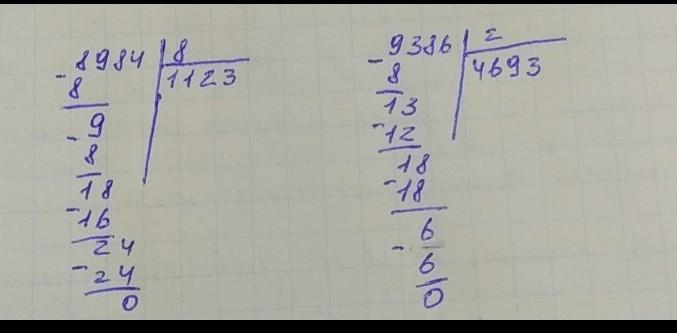 -8984 | 8
8 | 1123
-9
8
18
-16
24
-24
0
-9386 | 2
8 | 4693
13
-12
18
-18
6
-
6
0